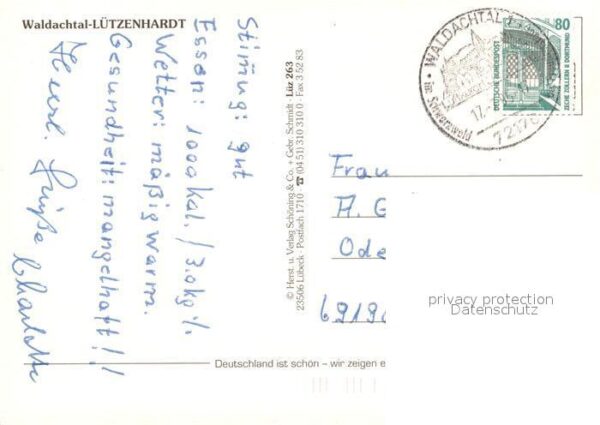 Waldachtal-LÜTZENHARDT
Stimmung: gut
Essen: 1000 kal. /
Wetter: mäßig warm.
Gesundheit: mangelhaft!!
Herzl. Grüße Charlotte
© Herst. u. Verlag Schöning & Co. + Gebr. Schmidt · Lüz 263
23506 Lübeck · Postfach 1710 · ☎ (04 51) 310 310 0 · Fax 3 52 83
WALDACHTAL 1
im Schwarzwald
17.
72178
80
DEUTSCHE BUNDESPOST
ZECHE ZOLLERN II DORTMUND
Frau
A. G
Ode
6919
privacy protection
Datenschutz
Deutschland ist schön – wir zeigen e